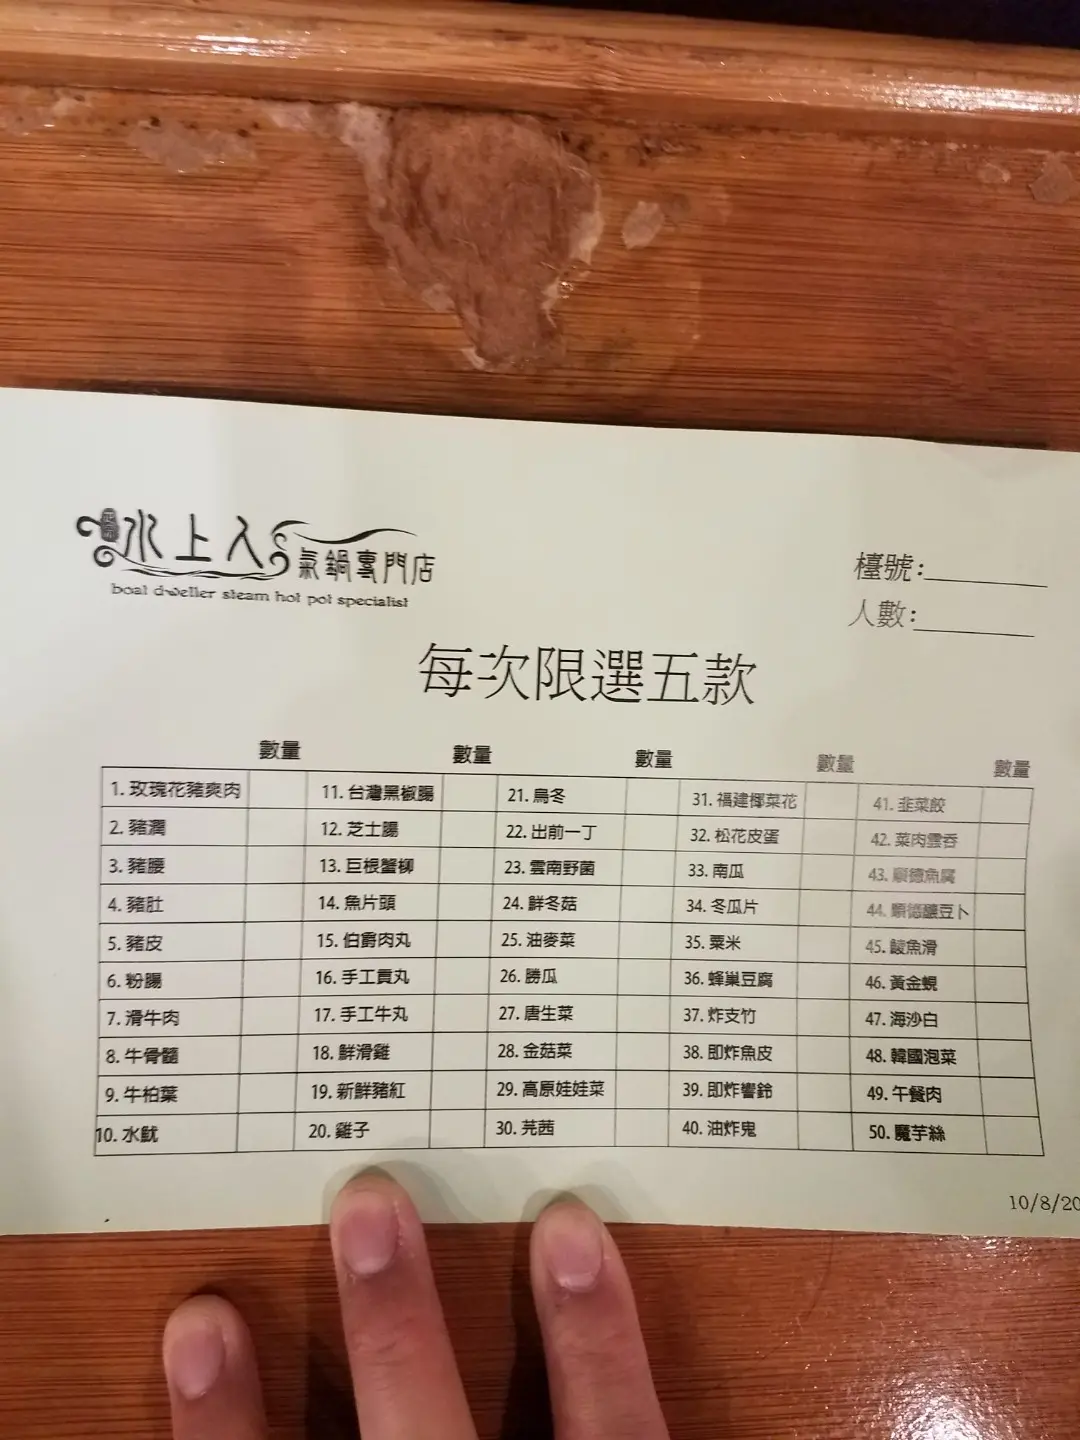 水上人 氣鍋專門店
boat dweller steam hot pot specialist
檯號:
人數:
每次限選五款
數量 數量 數量 數量 數量
1. 玫瑰花豬爽肉 11. 台灣黑椒腸 21. 烏冬 31. 福建椰菜花 41. 韭菜餃
2. 豬潤 12. 芝士腸 22. 出前一丁 32. 松花皮蛋 42. 菜肉雲吞
3. 豬腰 13. 巨根蟹柳 23. 雲南野菌 33. 南瓜 43. 順德魚腐
4. 豬肚 14. 魚片頭 24. 鮮冬菇 34. 冬瓜片 44. 順德釀豆卜
5. 豬皮 15. 伯爵肉丸 25. 油麥菜 35. 粟米 45. 鯪魚滑
6. 粉腸 16. 手工貢丸 26. 勝瓜 36. 蜂巢豆腐 46. 黃金蜆
7. 滑牛肉 17. 手工牛丸 27. 唐生菜 37. 炸支竹 47. 海沙白
8. 牛骨髓 18. 鮮滑雞 28. 金菇菜 38. 即炸魚皮 48. 韓國泡菜
9. 牛柏葉 19. 新鮮豬紅 29. 高原娃娃菜 39. 即炸響鈴 49. 午餐肉
10. 水魷 20. 雞子 30. 芫茜 40. 油炸鬼 50. 魔芋絲
10/8/20